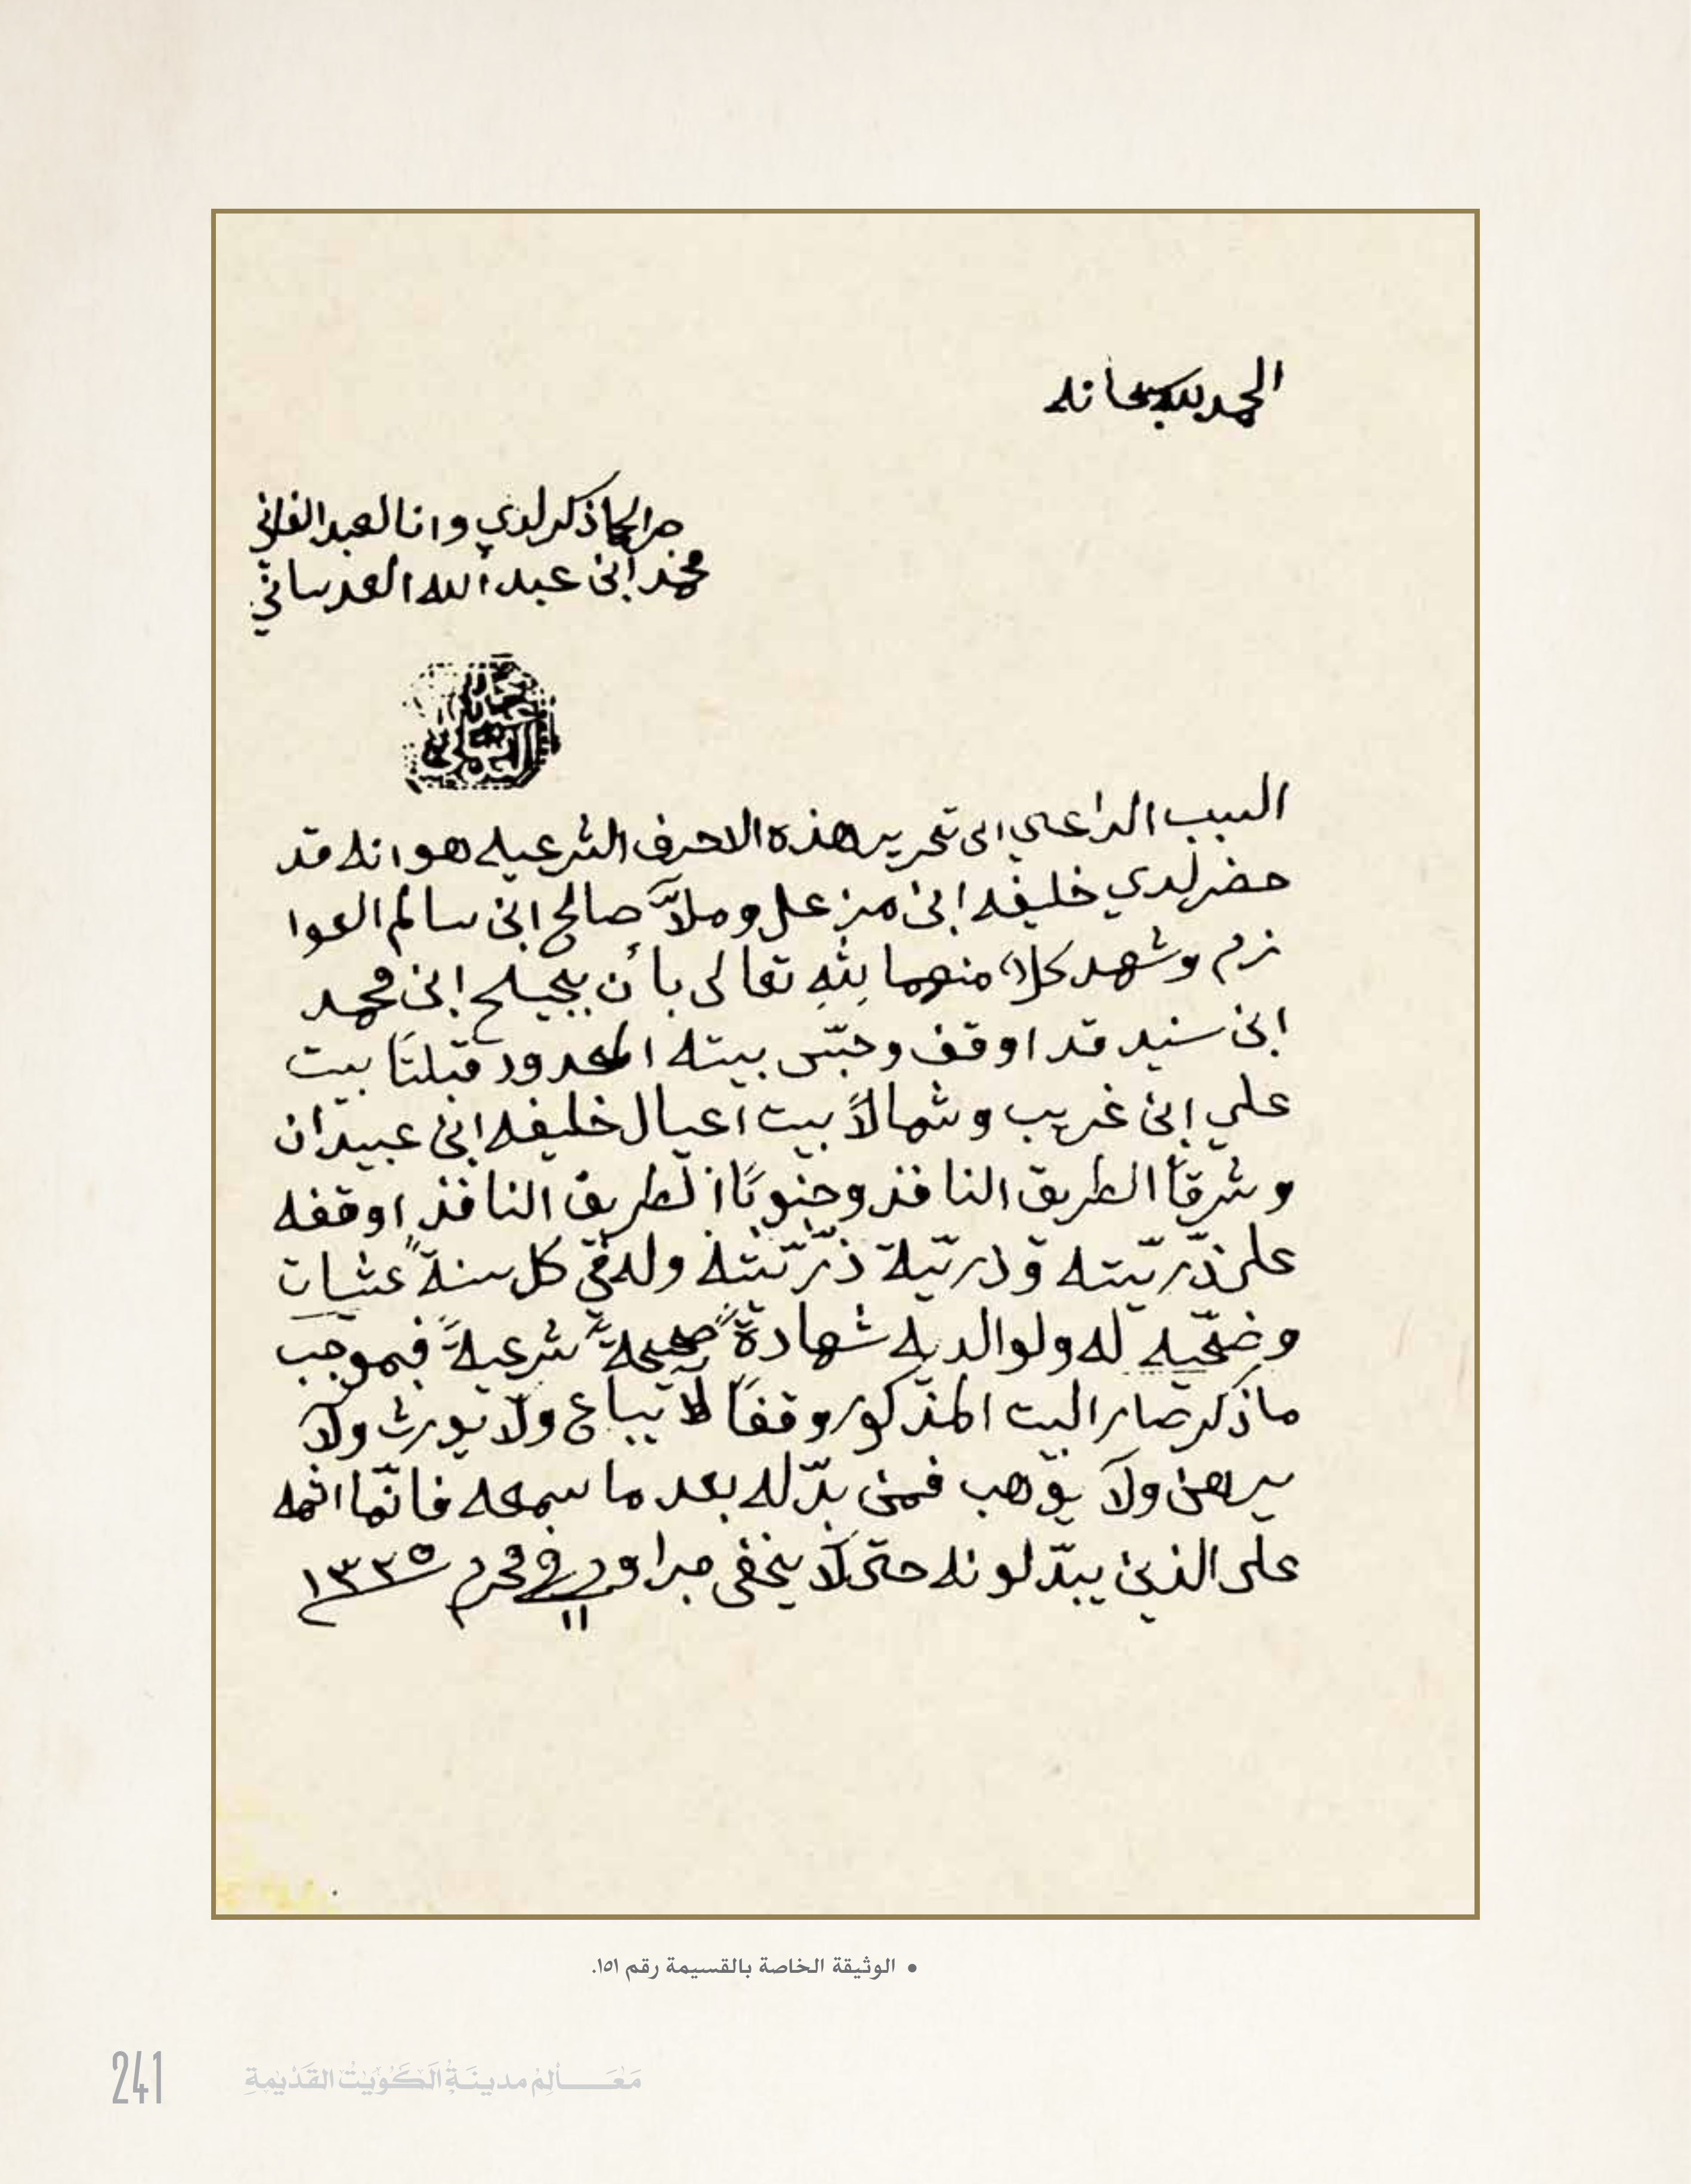 الحمد لله سبحانه
جرا لما ذكر لدي وانا العبد الفاني
محمد ابن عبد الله العدساني
السبب الداعي الى تحرير هذه الاحرف الشرعيه هو انه قد
حضر لدي خليفه ابن مزعل وملاّ صالح ابن سالم العوا
زم وشهد كلاً منهما لله تعالى بأن بجيلح ابن محمد
ابن سنيد قد اوقف وحبّس بيته المحدود قبلتاً بيت
علي ابن غريب وشمالاً بيت اعيال خليفه ابن عبيدان
وشرقاً الطريق النافذ وجنوباً الطريق النافذ اوقفه
على ذرّيته وذريّة ذرّيّته وله في كل سنةً عشيات
وضحّيه له ولوالديه شهادةً صحيحةً شرعيةً فبموجب
ماذكر صار البيت المذكور وقفاً لا يباع ولا يورث ولا
يرهن ولا يوهب فمن بدّله بعد ما سمعه فانّما اثمه
على الذين يبدّلونه حتى لا يخفى جرا وحرر في ١١ محرم ١٣٣٥
• الوثيقة الخاصة بالقسيمة رقم ١٥١.
241 مَعَالِمُ مدينَةِ الكُوَيْتْ القَدْيمةِ